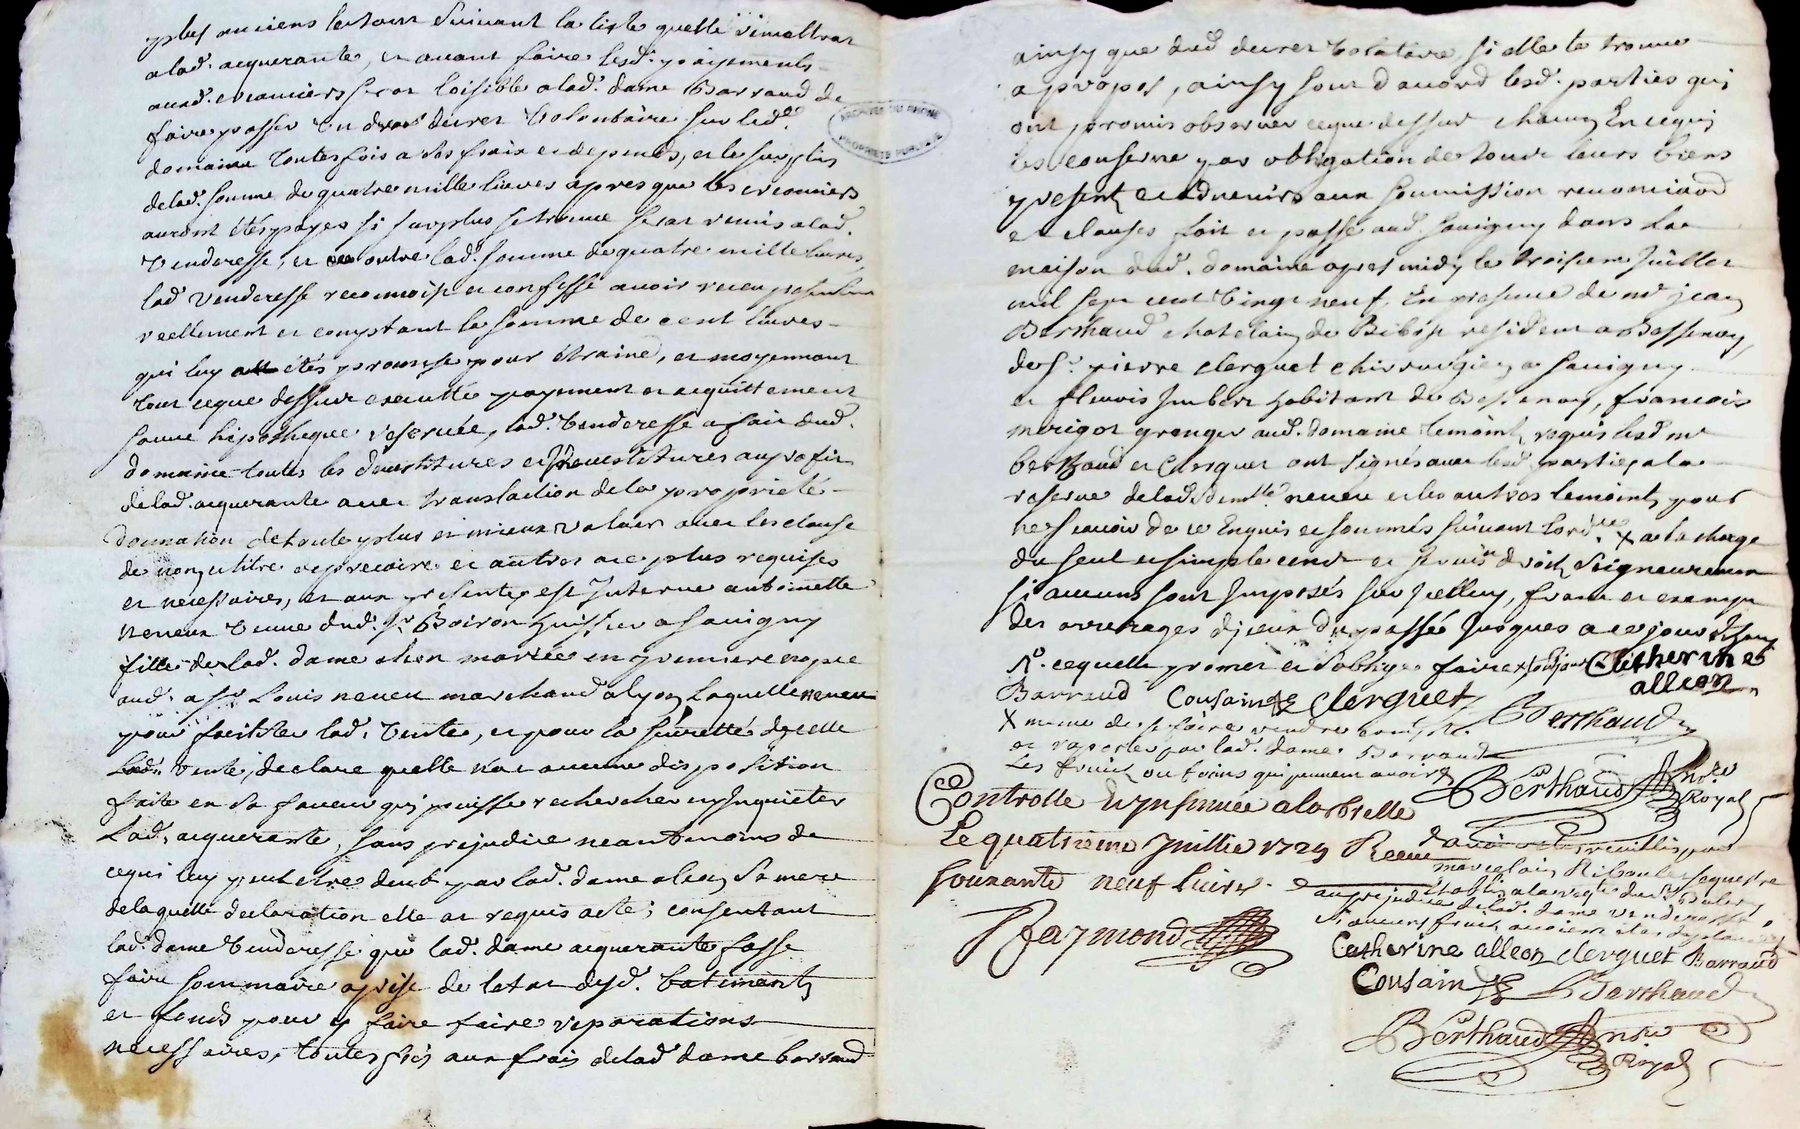 plus anciens le tout suivant la liste quelle remettra
a lad. acquerante, et avant faire lesd. payements
auxd. creanciers sera loisible a lad. dame Barraud de
faire passer un decret volontaire sur led.
domaine toutesfois a ses frais et depends, et le surplis
de lad. somme de quatre mille livres apres que les creanciers
auront étés payes si surplus se trouve sera remis a lad.
venderesse, et outre lad. somme de quatre mille livres,
lad. venderesse reconnoist et confesse avoir receu presentement
reellement et comptant la somme de cent livres
qui luy a étés promise pour étraine, et moyennant
tout ceque dessus executté payement et acquittement
sauve hipotheque reservée, lad. venderesse a fait dud.
domaine toutes les devestitures et investitures au profit
de lad. acquerante avec translaction de la proprieté
donnation de toute plus et mieux valuer avec les clause
de constitut de precaire et autres a ce plus requises
et necessaires, et aux presentes est intervenue anthoinette
neveux veuve dud. sr. Boiron huissier a Savigny
fille de lad. dame aleon mariée en premiere nopce
aud. a sr. Louis neveu marchand a lyon laquelle neveu
pour faciliter lad. vente, et pour la sûretté dycelle
lad. vente, declare quelle n'a aucune disposition
faite en sa faveur qui puisse rechercher ny Inquieter
Lad. acquerante, sans prejudice neantmoins de
cequi luy peut etre deub par lad. dame aleon sa mere
de laquelle declaration elle a requis acte; consentant
lad. dame venderesse que lad. dame acquerante fasse
faire sommaire aprise de letat desd. batiments
et fonds pour y faire faire reparations
necessaires, toutesfois aux frais de lad. dame barraud
ARCHIVES DU RHONE
PROPRIETE PUBLIQUE
ainsy que dud. decret volontaire si elle le trouve
a propos, ainsy sont d'acord lesd. parties qui
ont promis observer ceque dessus chacun En cequi
les conserne par obligation de tous leurs biens
present et advenirs aux soumission renonciaons
et clauses fait et passé aud. Savigny dans la
maison dud. domaine apres midy le troisieme Juillet
mil sept cent vingt neuf, En presence de mr jean
Berthaud chatelain de Bibost resident a Bessenay,
de sr. pierre clerguet chirurgien a Savigny
et fleuris Imbert habitant de Bessenay, francois
merigot granger aud. domaine temoints requis lesd. mr
berthaud et Clerguet ont signés avec lesd. parties, a la
reserve de lad. demlle neveu et les autres temoints pour
ne scavoir de ce Enquis et sommés suivant lord.ce x a la charge
du seul et simple cens et servis droits seigneureaux
si aucuns sont Imposés sur Icelluy, franc et exempt
des arrerages dyceux du passé Jusques a ce jour
ce quelle promet et soblige faire Catherine
alleon
Barraud Cousain Clerguet
x meme de se faire rendre compte Berthaud
et raporter par lad. dame Barraud
Les fruits ou foins qui peuvent avoir Berthaud nore
Royal
Controllé et Insinuée a larbrelle
Le quatrieme Juillie 1729 Receu
soixante neuf Livres.
Raymond
au prejudice de lad. dame venderesse
Catherine alleon clerguet Barraud
Cousain Berthaud
Berthaud nore
Royal